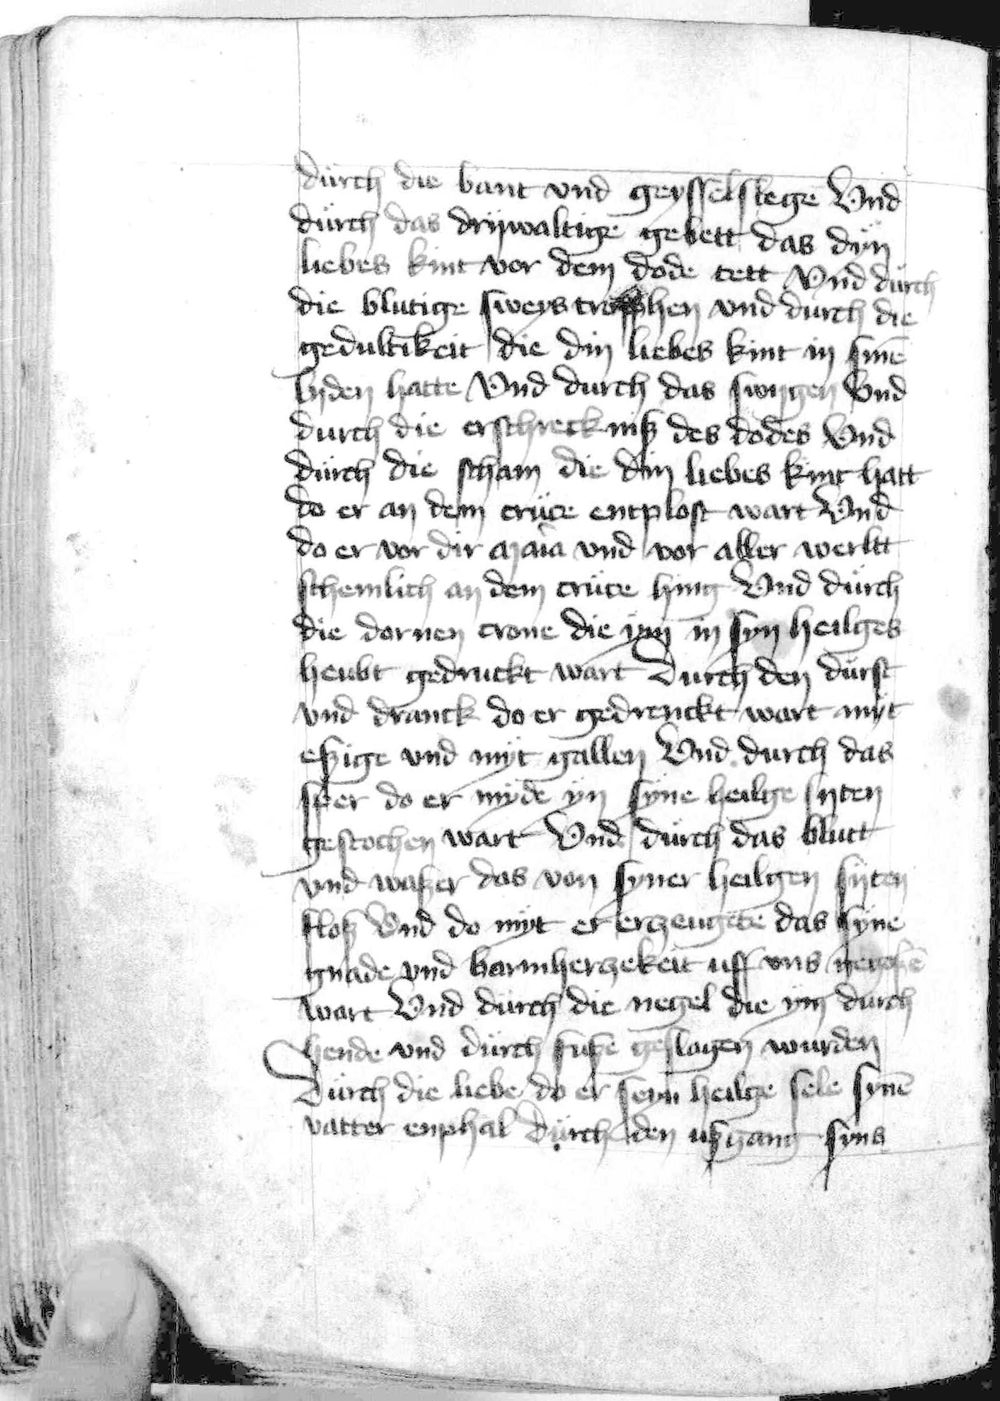 dürch die bant vnd geysselslege Vnd
dürch das drijwaltige gebett das dÿn
liebes kint vor dem dode tett Vnd dürch
die blutige sweystrophen vnd durch die
gedultikeit die din liebes kint in sinē
lyden hatte Vnd durch das swigen Vnd
durch die erschreckniß des dodes Vnd
dürch die scham die din liebes kint hatt
do er an dem crüce entplost wart Vnd
do er vor dir maria vnd vor aller werltt
schemlich an dem crüce hing Vnd dürch
die dornen crone die ÿm in syn heilges
heubt gedruckt wart Durch den dürst
vnd dranck do er gedrenckt wart mÿt
eßige vnd mÿt gallen Vnd durch das
sper do er mÿde ÿn sÿne heilge sijten
gestochen wart Vnd dürch das blutt
vnd waßer das von syner heilgen sijten
floß Vnd do mÿt er erzeugete das sÿne
gnade vnd barmherczekeit uff vns
wart Vnd dürch die negel die ÿm durch
hende vnd dürch fuße geslagen wurden
Dürch die liebe do er seyn heilge sele synē
vatter enphal Dürch den ußgang syns